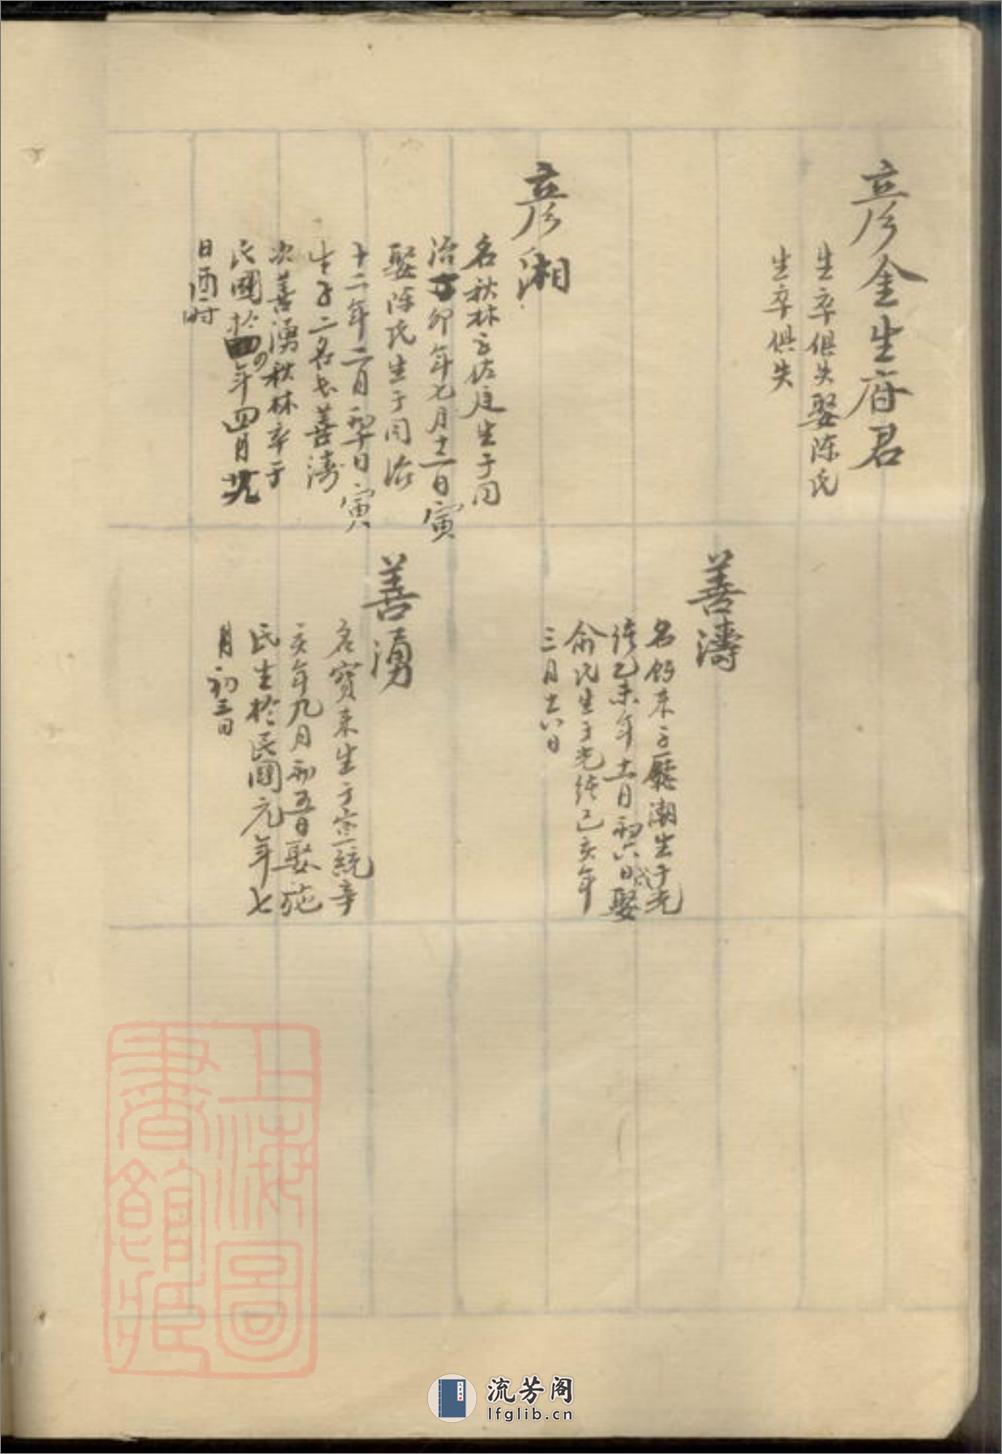 彦金生府君
生卒俱失娶陈氏
生卒俱失
彦湘
名秋林字佐庭生于同
治丁卯年七月十二日寅
娶陈氏生于同治
十二年二月初十日寅
生子二名长善涛
次善湧秋林卒于
民國拾四年四月廿九
日酉时
善濤
名錦来字聽潮生于光
绪乙未年十二月初六日戌娶
俞氏生于光绪己亥年
三月十八日
善湧
名寳来生于宣統辛
亥年九月初五日娶施
氏生於民國元年七
月初三日
上海圖
書館藏
流芳阁
lfglib.cn